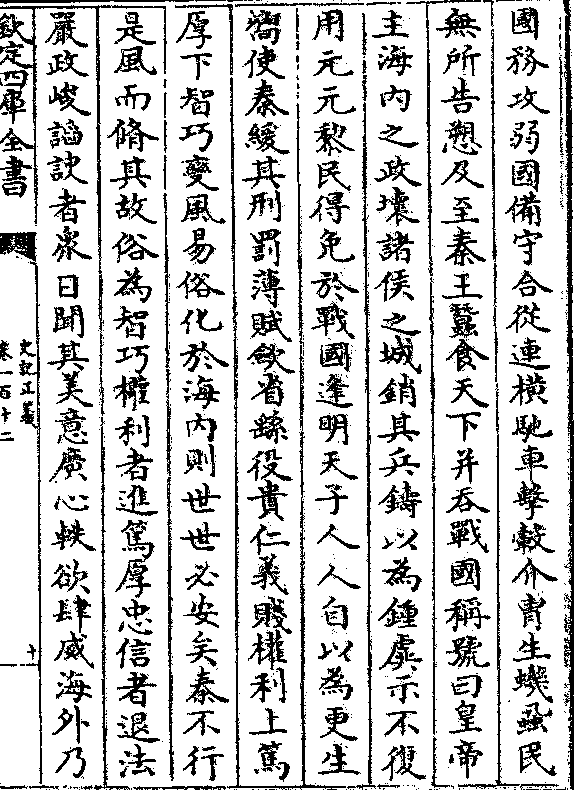 國務攻弱國備守合從連橫馳車擊轂介冑生蟣蝨民
無所告愬及至秦王蠶食天下并吞戰國稱號曰皇帝
主海內之政壞諸侯之城銷其兵鑄以為鍾虡示不復
用元元黎民得免於戰國逢明天子人人自以為更生
嚮使秦緩其刑罰薄賦斂省繇役貴仁義賤權利上篤
厚下智巧變風易俗化於海內則世世必安矣秦不行
是風而脩其故俗為智巧權利者進篤厚忠信者退法
嚴政峻諂諛者衆日聞其美意廣心軼欲肆威海外乃
欽定四庫全書
史記正義
卷一百十二
十